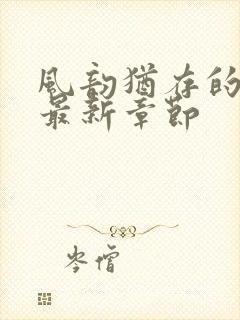 風韵猶存的
最新章節
岑僧